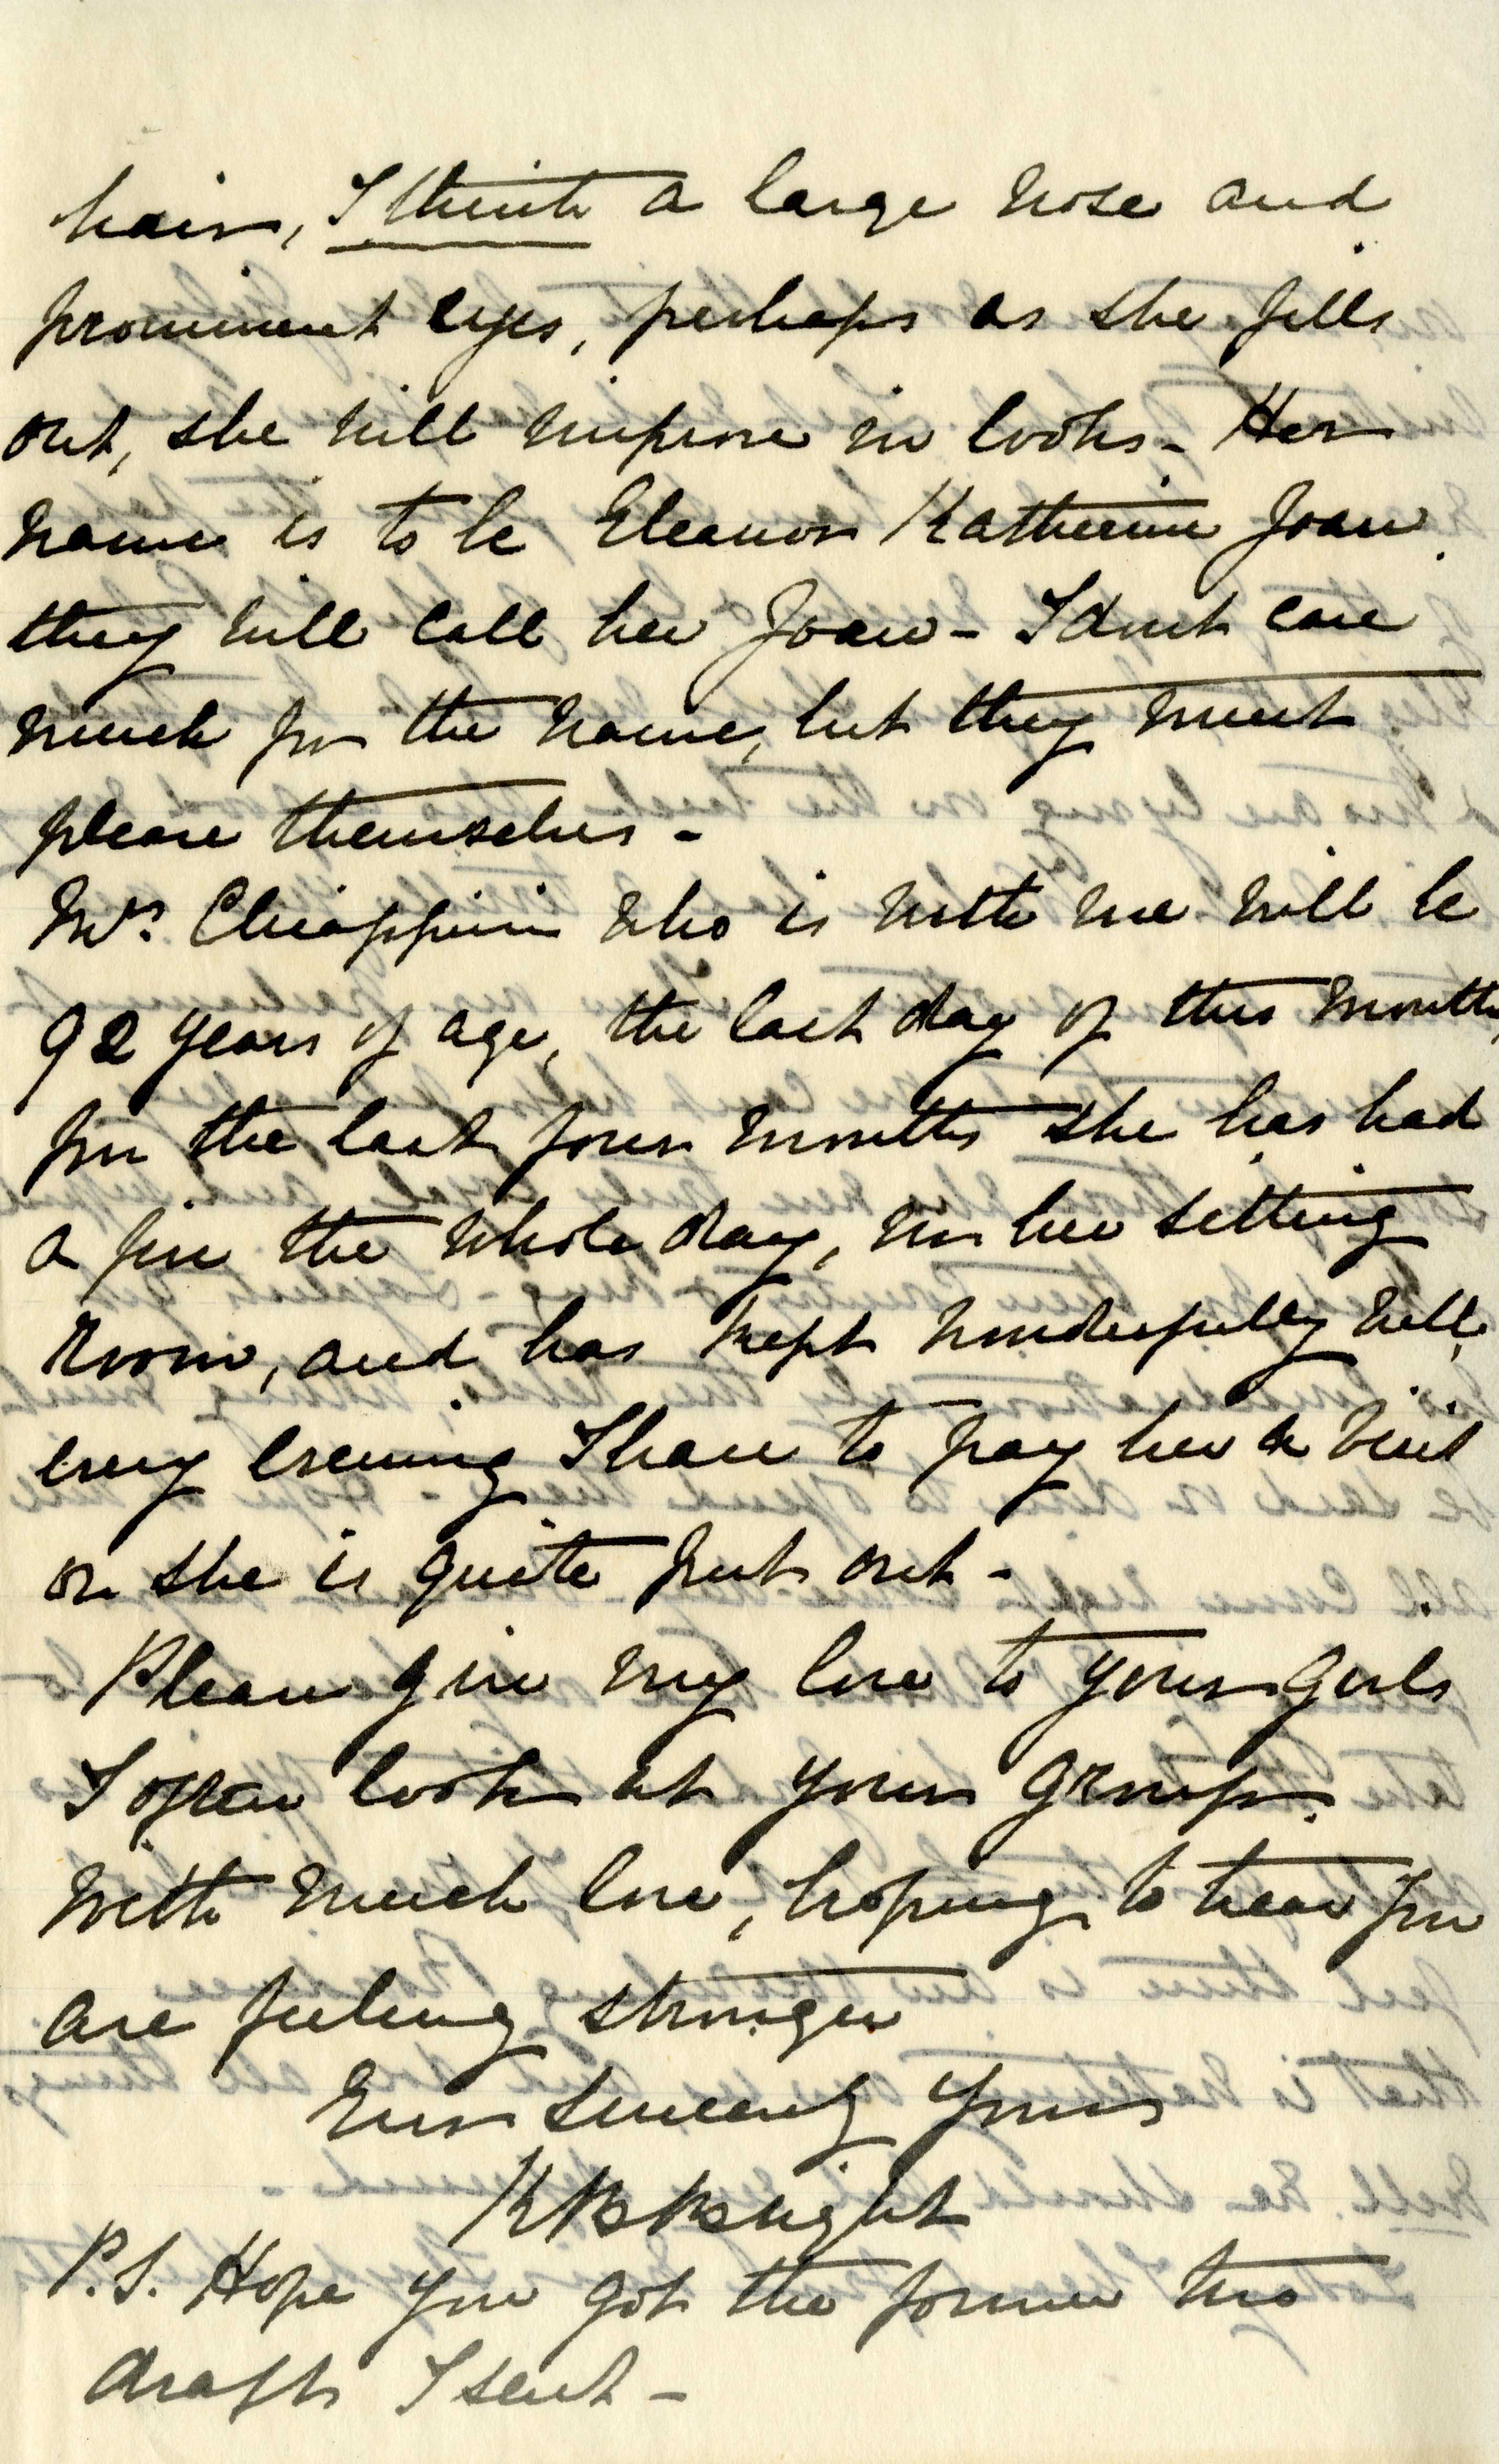 hair, I think a large nose and
prominent eyes, perhaps as she fills
out, she will improve in looks - Her
name is to be Eleanor Katherine Joan.
they will call her Joan - I dont care
much for the name, but they must
please themselves -
Mrs. Chiappini who is with me will be
92 years of age, the last day of this month,
for the last four months she has had
a fire the whole day, in her sitting
room, and has kept wonderfully well,
every evening I have to pay her a visit
or she is quite put out -
Please give my love to your girls
I often look at your group.
With much love, hoping to hear you
are feeling stronger
Ever sincerely yours
K B Blight
P.S. Hope you got the former two
drafts I sent -